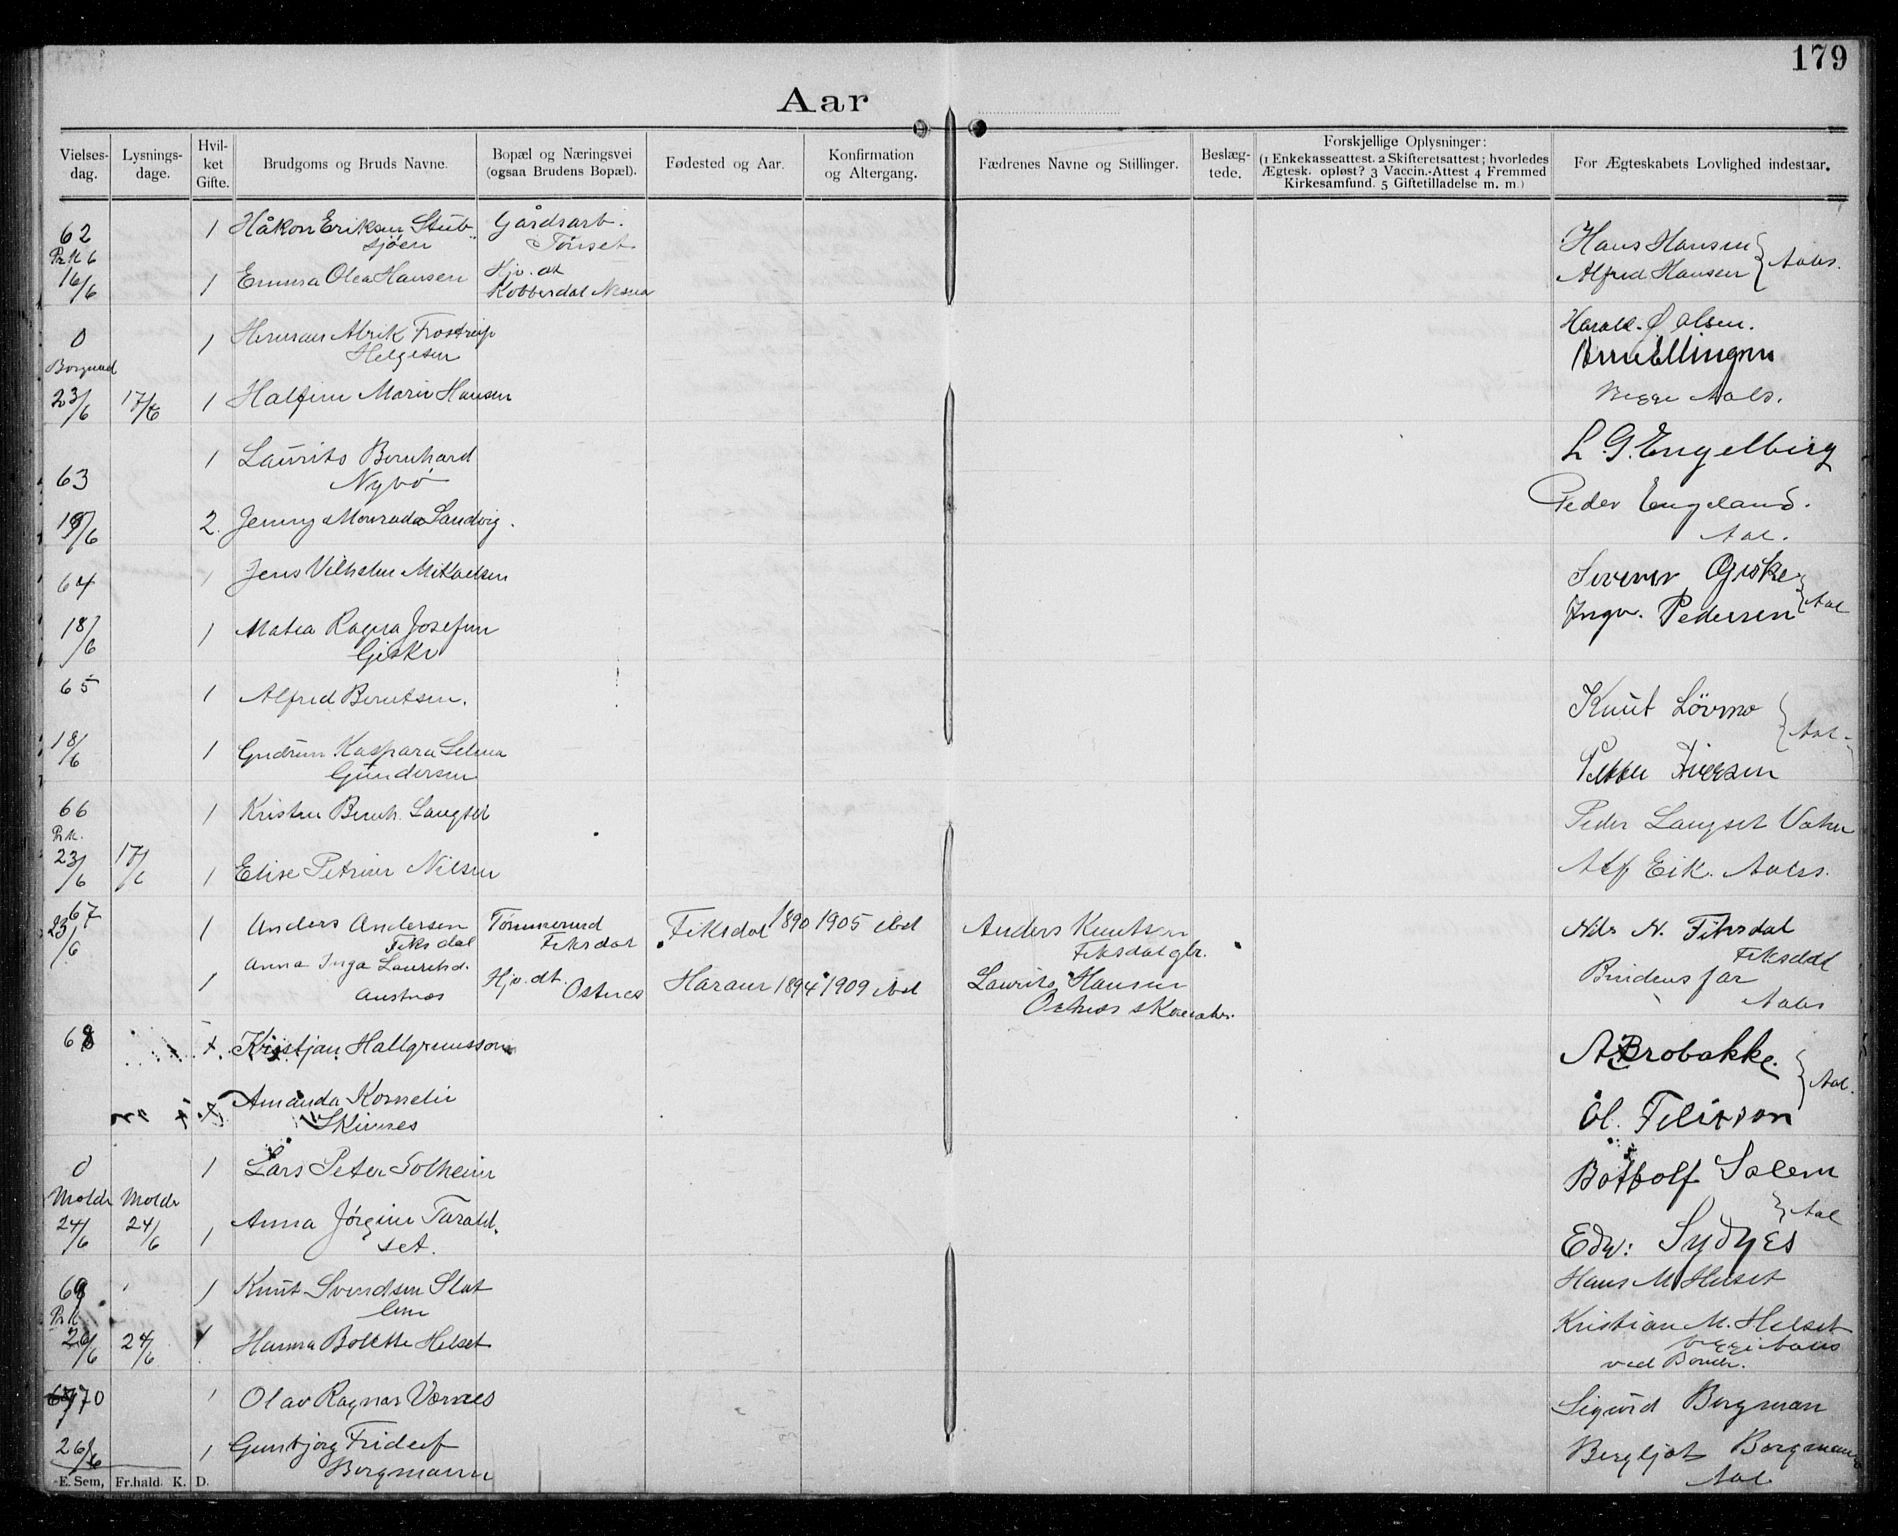 179
Aar
Vielses-dag. Lysnings-dage. Hvil-ket Gifte. Brudgoms og Bruds Navne. Bopæl og Næringsvei (ogsaa Brudens Bopæl). Fødested og Aar. Konfirmation og Altergang. Fædrenes Navne og Stillinger. Beslæg-tede. Forskjellige Oplysninger: (1 Enkekasseattest. 2 Skifteretsattest; hvorledes Ægtesk. opløst? 3 Vaccin.-Attest 4 Fremmed Kirkesamfund. 5 Giftetilladelse m. m.) For Ægteskabets Lovlighed indestaar.
62 1 Håkon Eriksen Stub- Gårdsarb.
sjöen Tönset Hans Hansen
16/6 1 Emma Olea Hansen Hjv. at Alfred Hansen } Aales.
Kobberdal Nesna
0 1 Herman Alrik Frostrup Harald Ø. Olsen.
Helgesen Ellingsen
Borgund
23/6 17/6 1 Marie Hansen Begge Aales.
1 Laurits Bernhard L. G. Engelberg
63 Nybö
19/6 2. Jenny Monrada Sandvig. Peder Engeland.
Aal.
64 1 Jens Vilhelm Mikalsen Giske
18/6 1 Matea Ragna Josefine Ingv. Pedersen } Aal
Giske
65 1 Alfred Berntsen. Knut Lövmo
18/6 1 Gudrun Kaspara Selma Petter Iversen } Aal.
Gundersen
66 1 Kristen Bernh. Langset Peder Langset
Pr. k.
23/6 17/6 1 Elise Petrine Nilsen Alf Eik. Aales.
67
23/6 1 Anders Andersen Tömmermd Fiksdal 1890 1905 ibd Anders Knutsen Nils N. Fiksdal
Fiksdal Fiksdal Fiksdal gbr. Fiksdal
1 Anna Inga Lauritsd. Hjv. dt. Haram 1894 1909 ibd Laurits Hansen Brudens far
Austnes Ostnes Ostnes Aales
68 Kristjan Hallgrimsson A. Brobakke.
Amanda Kornelie Ol. Felixson } Aal.
Skinnes
0 1 Lars Peter Solheim Botholf Salem
Molde Molde
24/6 24/6 1 Anna Jörgine Tarald- Edv: Sydnes } Aal
set.
69 1 Knut Svendsen Slat- Hans M. Helset
lem
Pr. k.
26/6 24/6 1 Hanna Bolette Helset Kristian M. Helset
70 1 Olav Ragnar Værnes Sigurd Borgmann
26/6 1 Gunbjörg Borgljot Borgmann
Borgmann Aal.
E. Sem, Fr.hald. K. D.